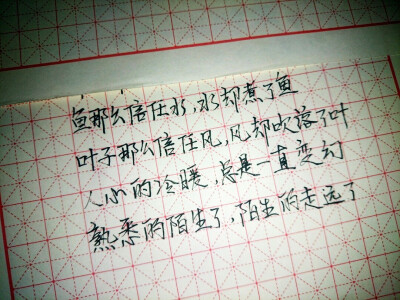 鱼那么信任水，水却煮了鱼
叶子那么信任风，风却吹落了叶
人心的冷暖，总是一直变幻
熟悉的陌生了，陌生的走远了